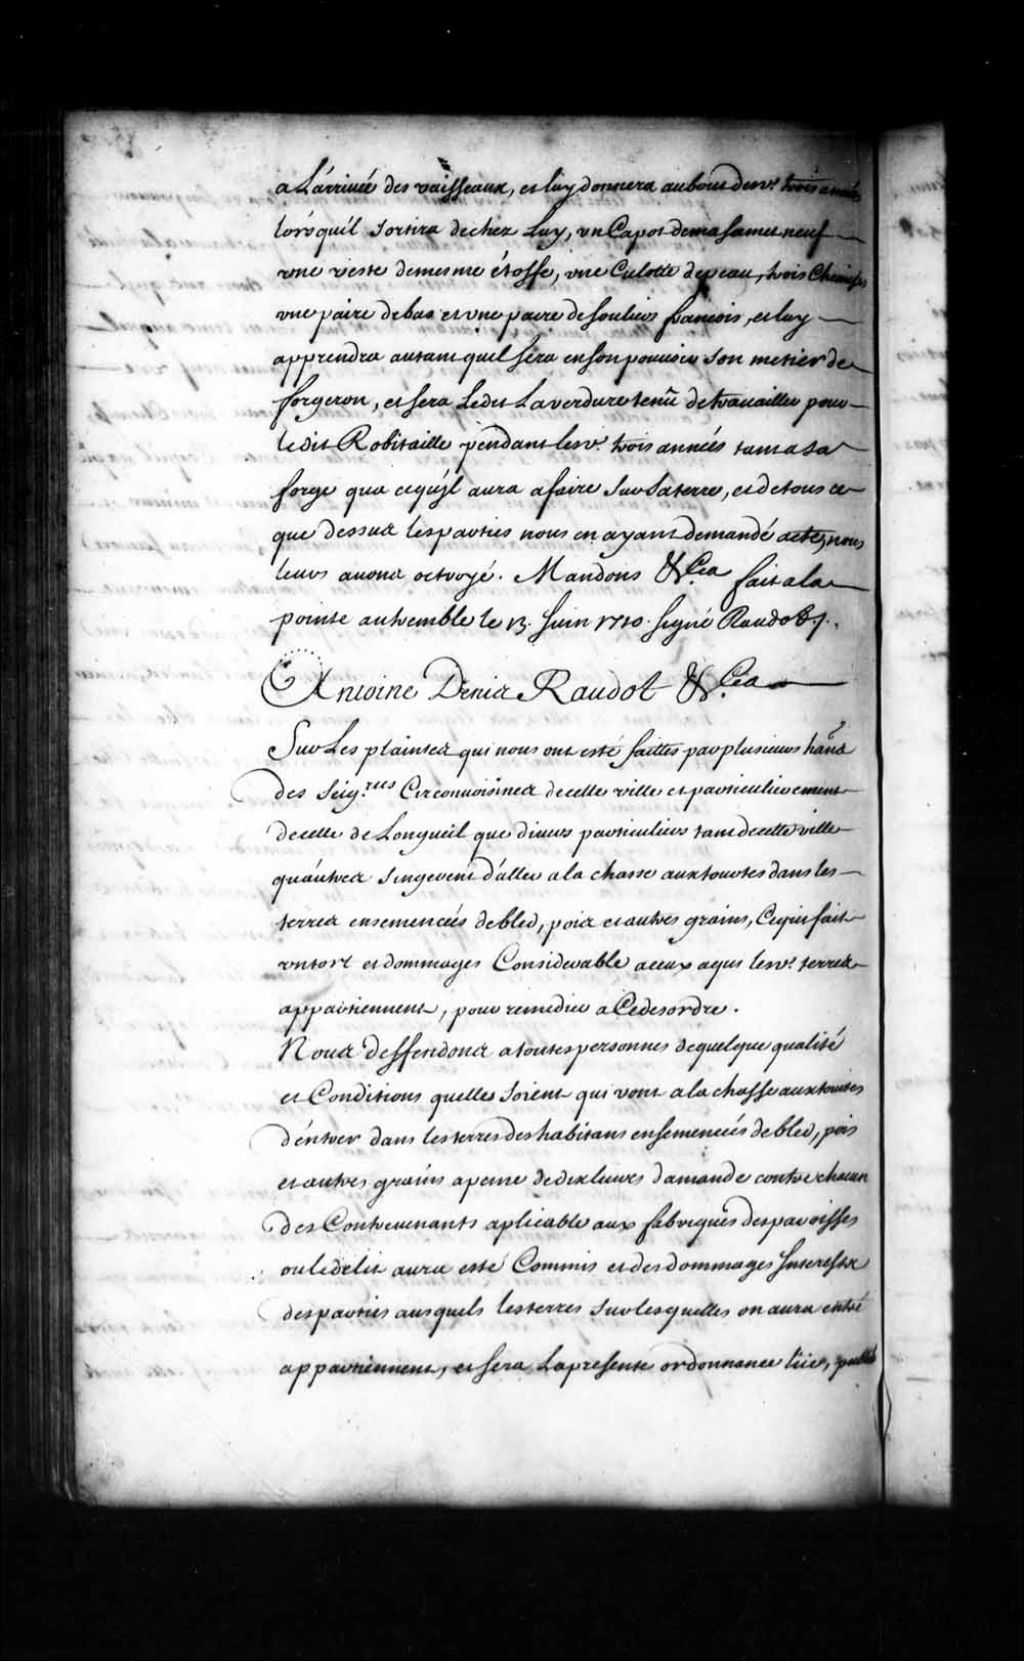 a L'arrivée des vaisseaux, et luy donnera au bout desd. trois années
lorsqu'il sortira de chez Luy, un Capot de masamet neuf
une veste de mesme étoffe, une Culotte de peau, trois Chemises
une paire de bas et une paire de souliers francois, et luy
apprendra autant quil sera en son pouuoir son metier de
forgeron, et sera Ledit Laverdure tenu de trauailler pour
ledit Robitaille pendant lesd. trois années tant a sa
forge qua ce qujl aura a faire sur sa terre, et de tous ce
que dessus les parties nous en ayant demandé acte, nous
leurs auons octroyé. Mandons &c.a fait a la
pointe autremble le 13. Juin 1710. Signé Raudot, j.
Antoine Denis Raudot &c.a
Sur Les plaintes qui nous ont esté faittes par plusieurs hans
des seig.ries Circonuoisines de cette ville et particulierement
de celle de Longueil que diuers particuliers tant de cette ville
qu'autres singerent d'aller a la chasse aux tourtes dans les
terres ensemencées de bled, pois et autres grains, Ce qui fait
un tort et dommages Considerable a ceux a qui lesd. terres
appartiennent, pour remedier a Ce desordre.
Nous deffendons a toutes personnes de quelque qualité
et Conditions quelles soient qui vont a la chasse aux tourtes
d'entrer dans les terres des habitans ensemencées de bled, pois
et autres grains a peine de dix liures damande contre chacun
des Contreuenants aplicable aux fabriques des paroisses
ou le delit aura esté Commis et des dommages Interests
des parties ausquels les terres sur lesquelles on aura entré
appartiennent, et sera La presente ordonnance lüe, publié